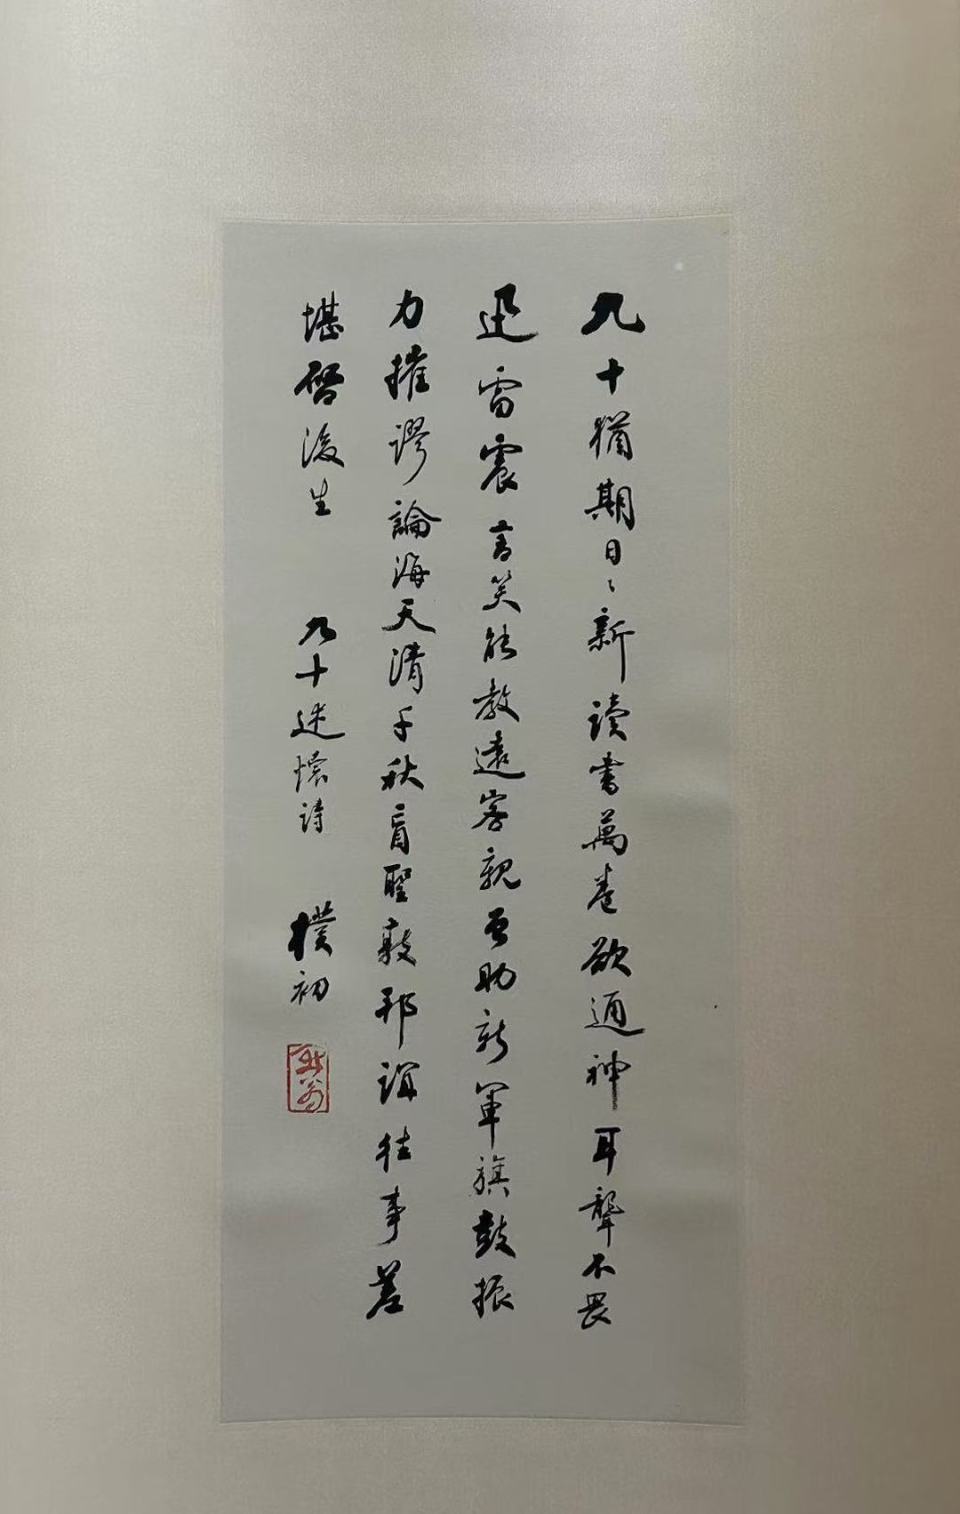 九十猶期日〻新读書萬卷欲通神耳聋不畏
迅雷震言笑能教遠客親曾助新軍旗鼓振
力摧谬論海天清千秋盲聖敦邦谊往事差
堪啓後生 九十述懷诗 樸初